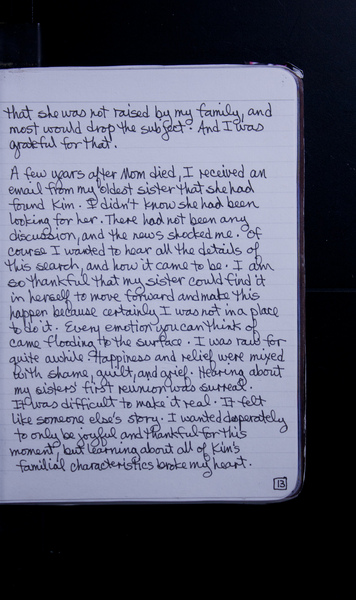 that she was not raised by my family, and
most would drop the subject. And I was
grateful for that.
A few years after Mom died, I received an
email from my oldest sister that she had
found Kim. I didn't know she had been
looking for her. There had not been any
discussion, and the news shocked me. Of
course I wanted to hear all the details of
this search, and how it came to be. I am
so thankful that my sister could find it
in herself to move forward and make this
happen because certainly I was not in a place
to do it. Every emotion you can think of
came flooding to the surface. I was raw for
quite awhile. Happiness and relief were mixed
with shame, guilt, and grief. Hearing about
my sisters' first reunion was surreal.
It was difficult to make it real. It felt
like someone else's story. I wanted desperately
to only be joyful and thankful for this
moment, but learning about all of Kim's
familial characteristics broke my heart.
13